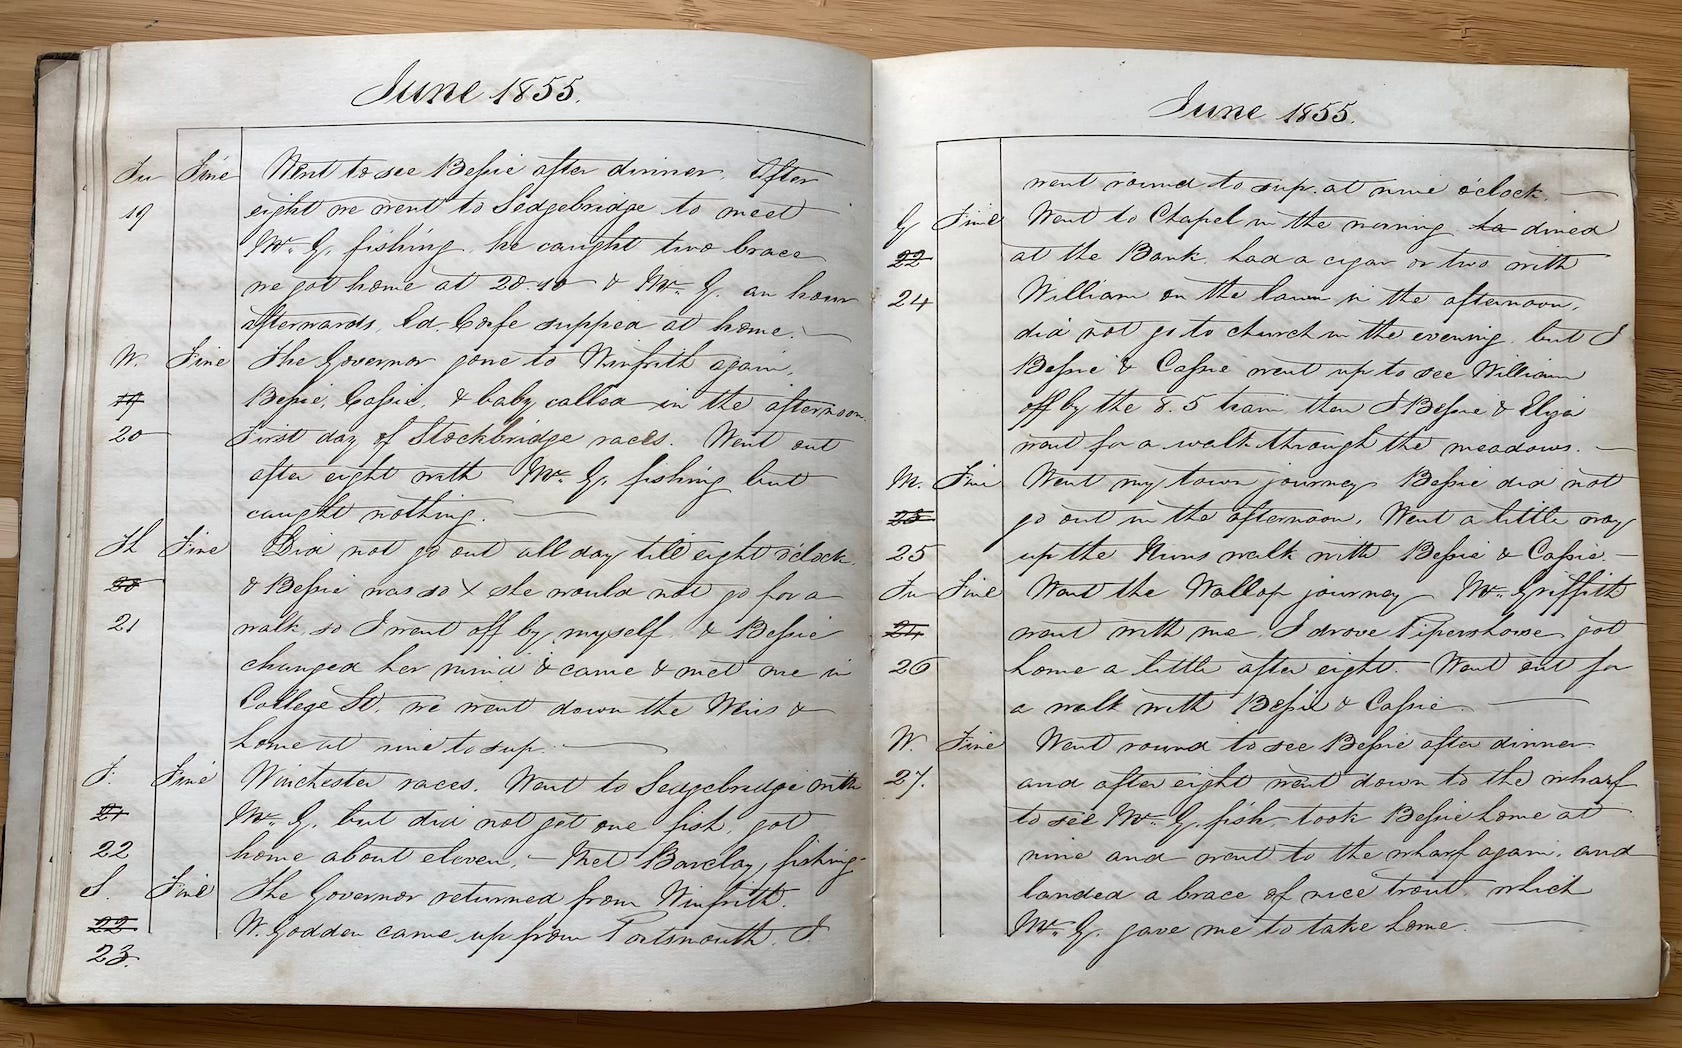 June 1855.
Tu Fine Went to see Bessie after dinner. After
19 eight we went to Sedgebridge to meet
Mr. G. fishing, he caught two brace
we got home at 20.10 & Mr. G. an hour
afterwards, Ed. Corfe supped at home.
W. Fine The Governor gone to Winfrith again.
19 Bessie, Cassie, & baby called in the afternoon.
20 First day of Stockbridge races. Went out
after eight with Mr. G. fishing but
caught nothing.
Th Fine Did not go out all day till eight o'clock.
20 & Bessie was so X she would not go for a
21 walk, so I went off by myself. & Bessie
changed her mind & came & met me in
College St. we went down the Weirs &
home at nine to sup.
F. Fine Winchester races. Went to Sedgebridge with
21 Mr. G. but did not get one fish, got
22 home about eleven. — Met Barclay fishing.
S. Fine The Governor returned from Winfrith.
22 W. Godden came up from Portsmouth. I
23.
June 1855.
went round to sup. at nine o'clock. —
G Fine Went to Chapel in the morning to dined
22 at the Bank. had a cigar or two with
24 William on the lawn in the afternoon.
did not go to church in the evening. but I
Bessie & Cassie went up to see William
off by the 8.5 train, then I Bessie & Eliza
went for a walk through the meadows. —
M. Fine Went my town journey Bessie did not
25 go out in the afternoon. Went a little way
25 up the Nuns walk with Bessie & Cassie —
Tu Fine Went the Wallop journey Mr. Griffith
24 went with me. I drove Pipershorse, got
26 home a little after eight. — Went out for
a walk with Bessie & Cassie. —
W. Fine Went round to see Bessie after dinner
27. and after eight went down to the wharf
to see Mr. G. fish, took Bessie home at
nine and went to the wharf again, and
landed a brace of nice trout which
Mr. G. gave me to take home. —